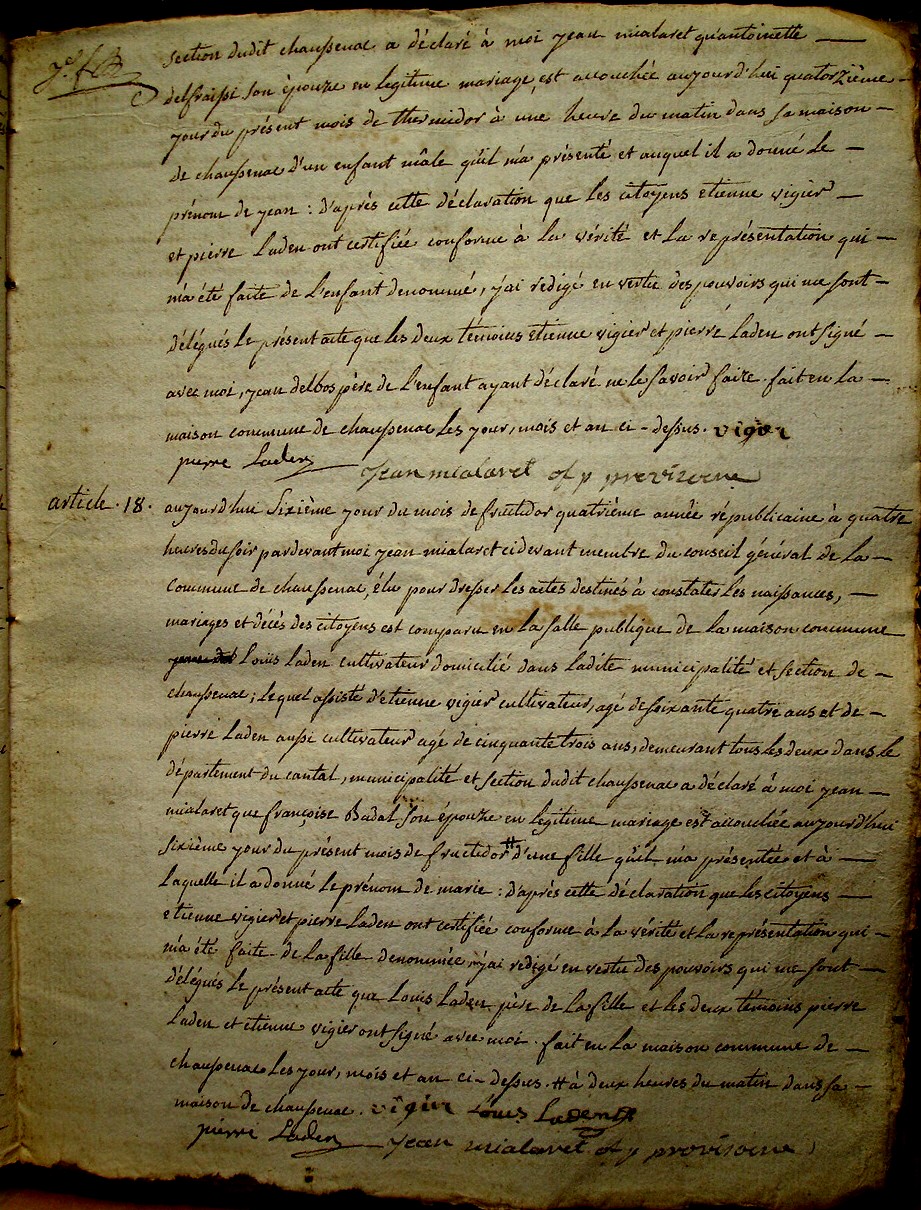 section dudit chaussenac a déclaré à moi jean mialaret qu'antoinette
delfraissi son épouze en legitime mariage, est accouchée aujourd'hui quatorzième
jour du présent mois de thermidor à une heure du matin dans sa maison
de chaussenac d'un enfant mâle qu'il m'a présenté et auquel il a donné le
prénom de jean : d'après cette déclaration que les citoyens etienne vigier
et pierre Laden ont certifiée conforme à la vérité et la représentation qui
m'a été faite de l'enfant denommé, j'ai rédigé en vertu des pouvoirs qui me sont
délégués le présent acte que les deux témoins etienne vigier et pierre Laden ont signé
avec moi, jean delbos père de l'enfant ayant déclaré ne le savoir faire. fait en la
maison commune de chaussenac les jour, mois et an ci-dessus. vigier
pierre Laden jean mialaret of p provisoire
article. 18. aujourd'hui sixième jour du mois de fructidor quatrième année républicaine à quatre
heures du soir pardevant moi jean mialaret cidevant membre du conseil général de la
commune de chaussenac, élu pour dresser les actes destinés à constater les naissances,
mariages et décès des citoyens est comparu en la salle publique de la maison commune
Loüis Laden cultivateur domicilié dans ladite municipalité et section de
chaussenac ; lequel assisté d'etienne vigier cultivateur, agé de soixante quatre ans et de
pierre Laden aussi cultivateur agé de cinquante trois ans, demeurant tous les deux dans le
département du cantal, municipalité et section dudit chaussenac a déclaré à moi jean
mialaret que françoise Badal son épouze en legitime mariage est accouchée aujourd'hui
sixième jour du présent mois de fructidor # d'une fille qu'il m'a présentée et à
laquelle il a donné le prénom de marie : d'après cette déclaration que les citoyens
etienne vigier et pierre Laden ont certifiée conforme à la vérité et la représentation qui
m'a été faite de la fille denommée j'ai redigé en vertu des pouvoirs qui me sont
délégués le présent acte que Louis Laden père de la fille et les deux témoins pierre
Laden et etienne vigier ont signé avec moi. fait en la maison commune de
chaussenac les jour, mois et an ci-dessus. # à deux heures du matin dans sa
maison de chaussenac. vigier Louis Laden
pierre Laden jean mialaret of p provisoire